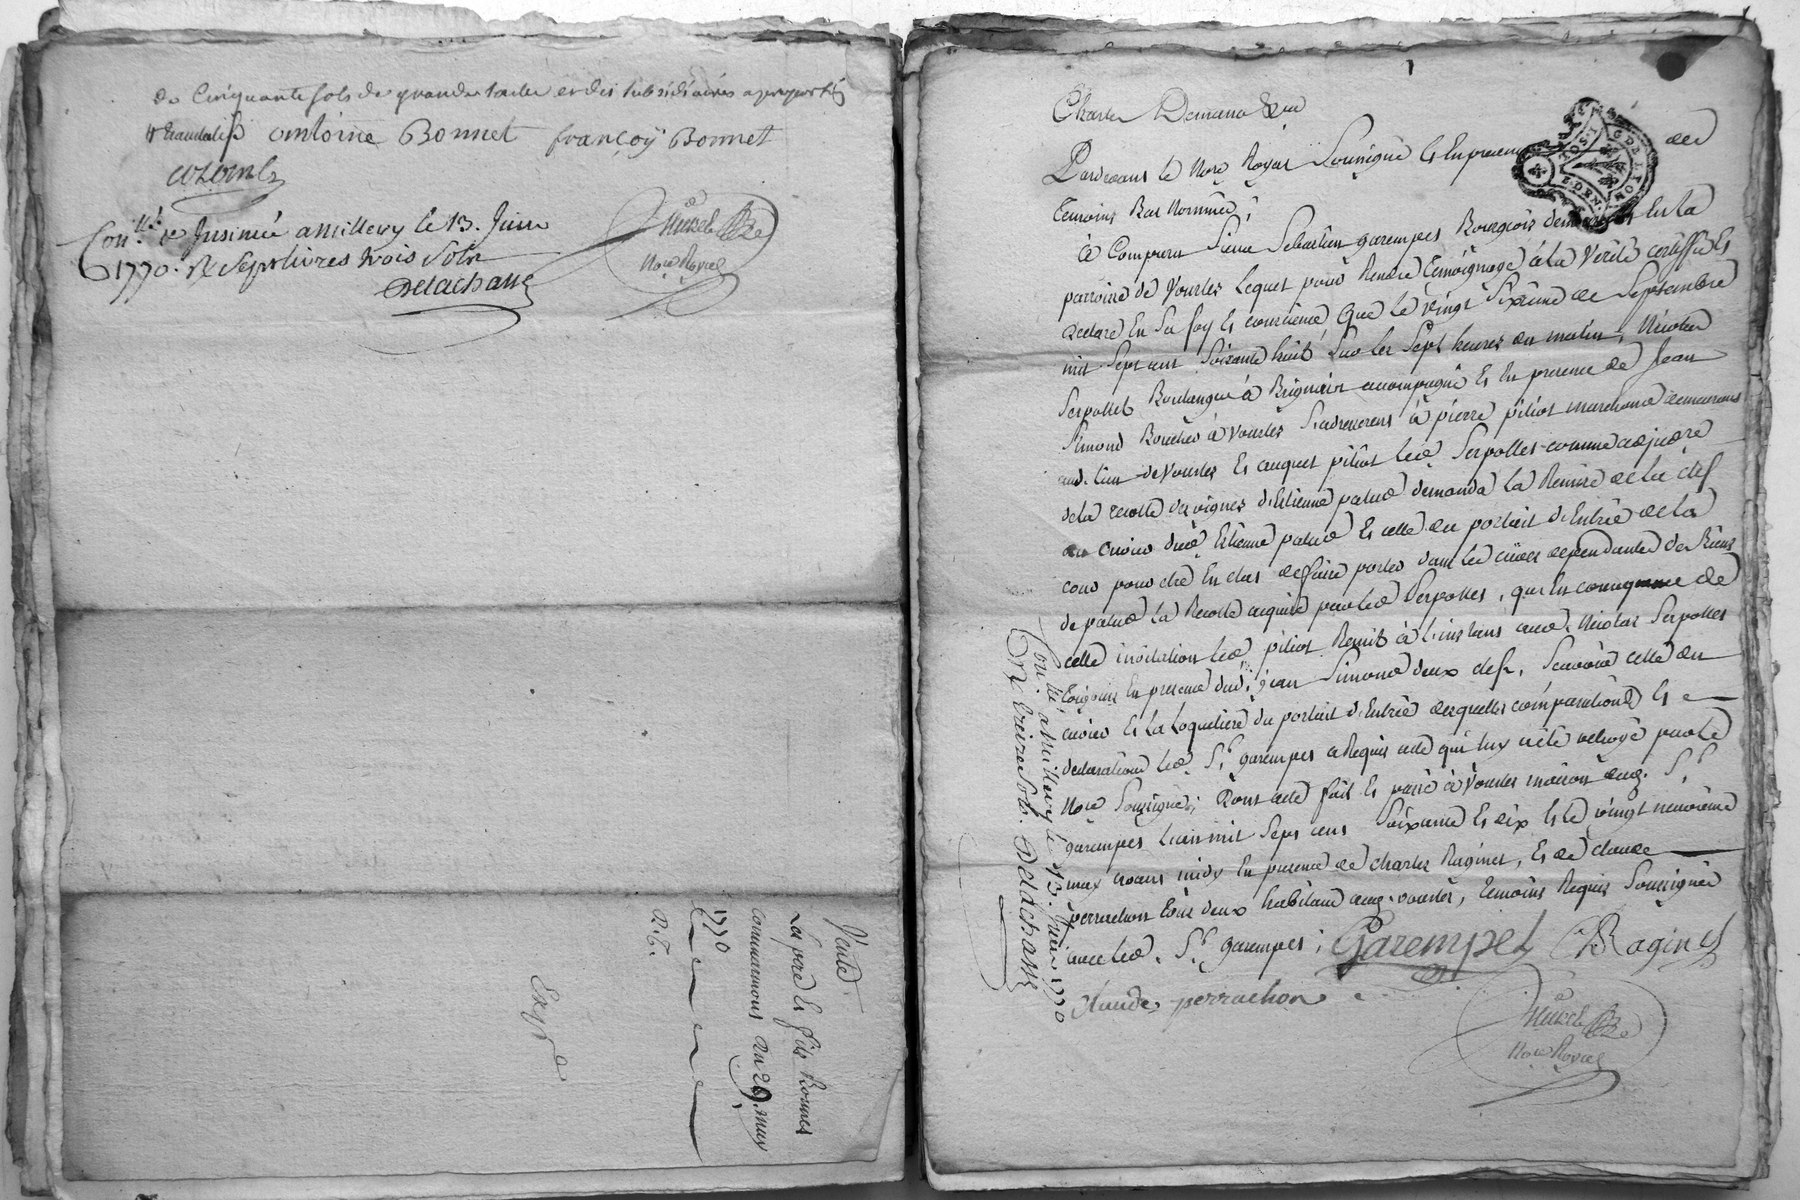 de Cinquante sols de grande taille et des subsidiaires a proportion
antoine Bonnet françoy Bonnet
Con.lé et Insinué a millery le 13. Juin
1770. R. Sept livres trois Sols
Delachasse
Nore Royal
Vente
Les pere et fils Bonnet
commarmons du 29. may
1770
Exp.é
Pardevant le Nore Royal Soussigné et En presence des
Temoins Bas Nommés ;
à Comparu Sieur Sebastien garempes Bourgeois demeurant En la
parroisse de Vourles Lequel pour Rendre Temoignage à la Verité certiffie et
declare En sa foy et conscience, Que le vingt Sixieme de Septembre
mil Sept cent Soixante huit Sur les Sept heures du matin, Nicolas
Serpollet Boulanger à Brignais accompagné et En presence de Jean
Simond Boucher à Vourles S'adresserent à pierre piliot marchand demeurant
aud. lieu de Vourles et auquel piliot led. Serpollet comme adjud.re
de la recolte des vignes d'Etienne palud demanda la Remise de la clef
du cuvier dud. Etienne palud et celle du portail d'Entrée de la
cour pour etre En etat de faire porter dans les cuves dependantes des Biens
de palud la Recolte acquise par led. Serpollet, que En consequence de
cette invitation led. piliot Remit à l'instant aud. Nicolas Serpollet
toujours En presence dud. Jean Simond deux clefs, Scavoir celle du
cuvier et la Loquetiere du portail d'Entrée desquelles comparution et
declaration led. Sr. garempes a Requis acte qui luy a été octroyé par le
Nore Soussigné ; Dont acte fait et passé à Vourles maison dud. Sr.
garempes L'an mil Sept cens Soixante et dix et le vingt neuvieme
may avant midy En presence de charles Raginet, et de claude
perrachon tous deux habitans aud. vourles, temoins Requis Soussignés
avec led. Sr. garempes ; Garempes CRaginet
Claude perrachon
Nore Royal
Con.lé a millery le 13. Juin 1770
R. treize Sols. Delachasse